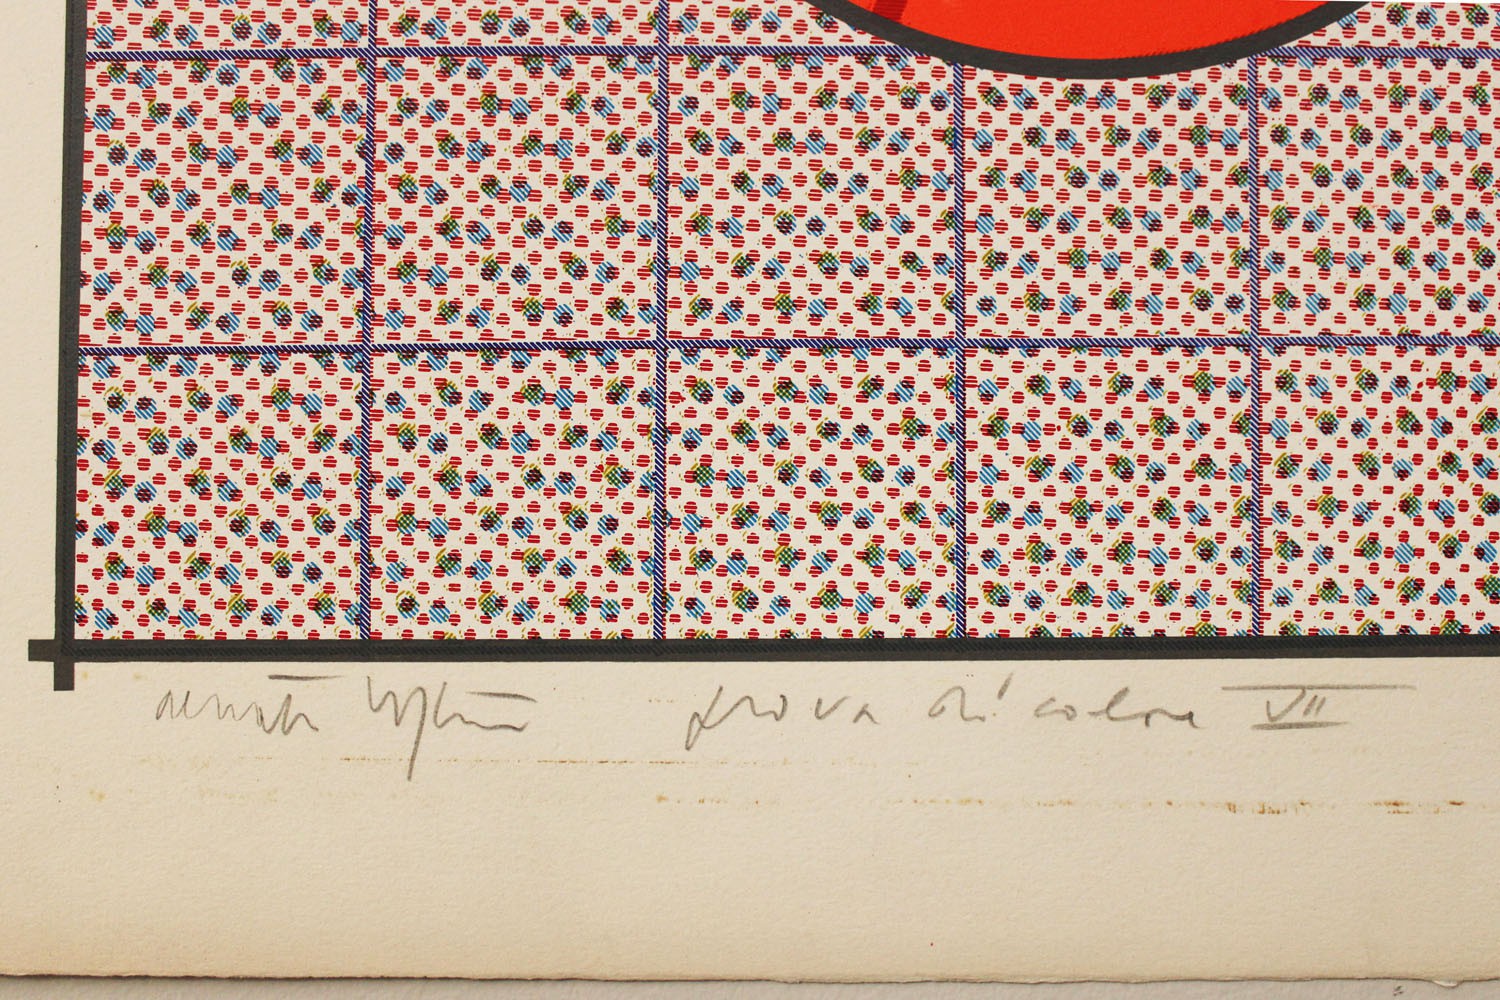 renato prova di colore VII